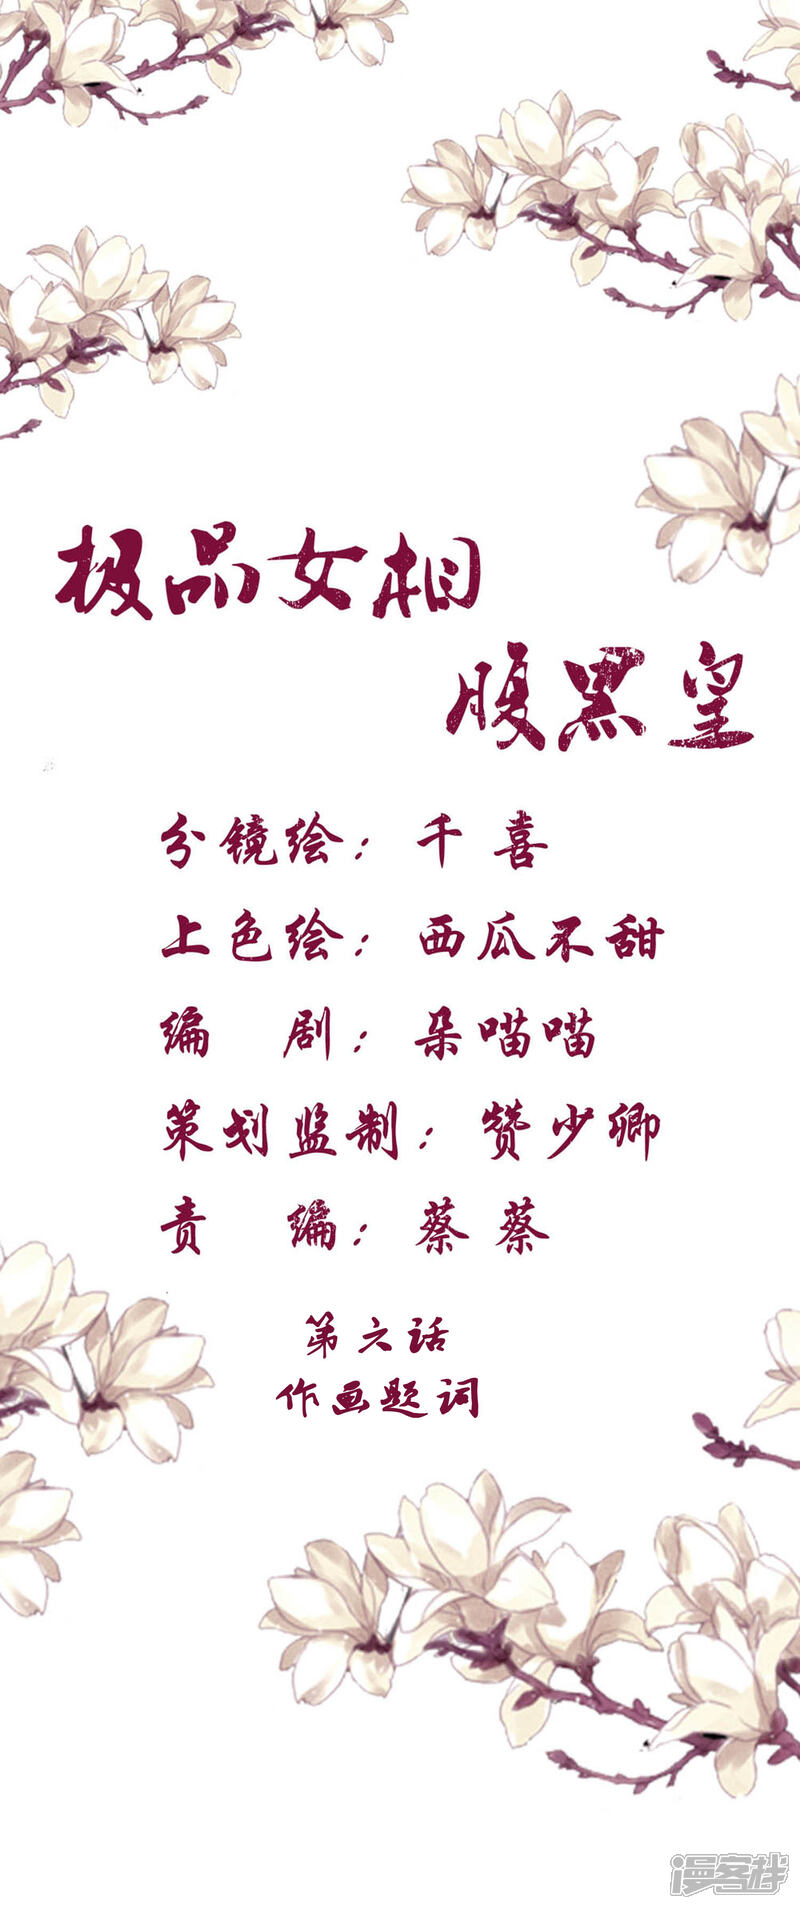 极品女相
腹黑皇
分镜绘：千喜
上色绘：西瓜不甜
编剧：朵喵喵
策划监制：赞少卿
责编：蔡蔡
第六话
作画题词
漫客栈